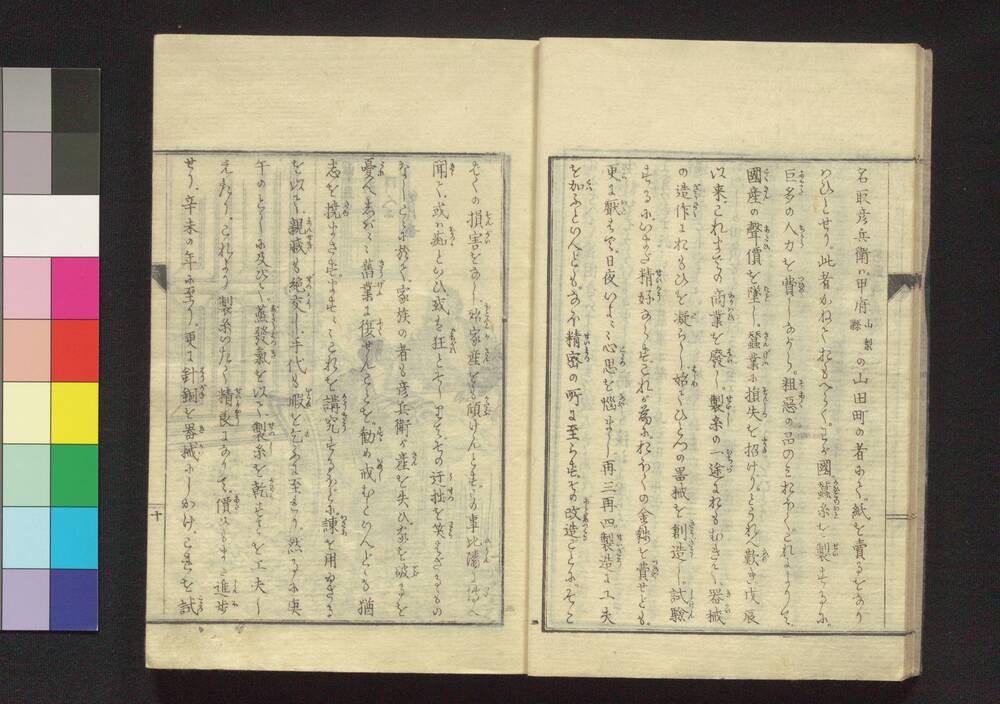 名取彦兵衛ハ甲府山梨縣の山田町の者なり。紙を賣るをなり
わひとせり。此者かねておもへらく。わが國蠶糸を製するに。
巨多の人力を費しながら。粗惡の品のミおほく。これによりて。
國産の聲價を墜し。蠶業に損失を招けり。とうれへ歎き戊辰
以來。これまでの商業を廢し。製糸の一途におもむきて。器械
の造作におもひを凝らし。始てひとつの器械を創造し。試驗
するにいまだ精好ならず。これが為におほくの金錢を費せども。
更に厭はで。日夜いよいよ心思を惱まし。再三再四製造に工夫
を加ふといへども。なほ精密の所に至らず。その改造ごとに。そこ
そくの損害をなし。殆家産をも傾けんとす。この事比隣に傳へ
聞て。或ハ癡といひ。或は狂とそしり。その迂拙を笑はざるもの
なし。こゝに於て。家族の者も彦兵衛が産を失ひ。家を破るを
憂へ。しばしば舊業に復せんことを。勸め戒むといへども。猶
志を撓まさず。ますますこれを講究するほどに。諫を用ゐざる
を以て。親戚も絶交し。手代も暇を乞ふに至れり。然るに庚
午のとしに及びて。蒸發氣を以て製糸を乾すことを工夫し
えたり。これより製糸いたく精良になりて。價いよいよ進歩
せり。辛未の年に至り。更に針銅を器械にしかけこれを試
十